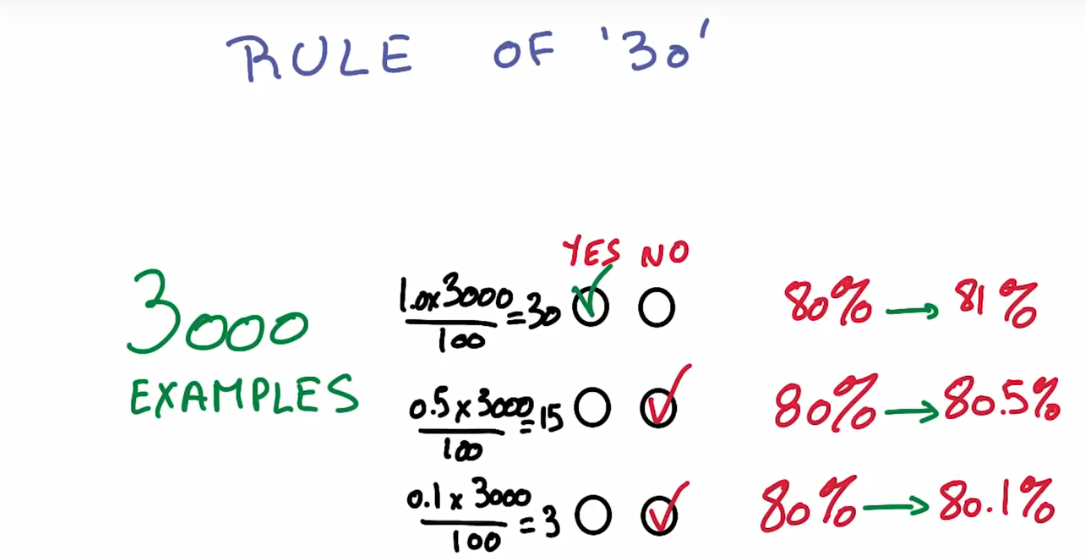 RULE OF '30'
YES NO
3000
EXAMPLES
1.0x3000
100
=30
80% → 81%
0.5x3000
100
=15
80% → 80.5%
0.1x3000
100
=3
80% → 80.1%